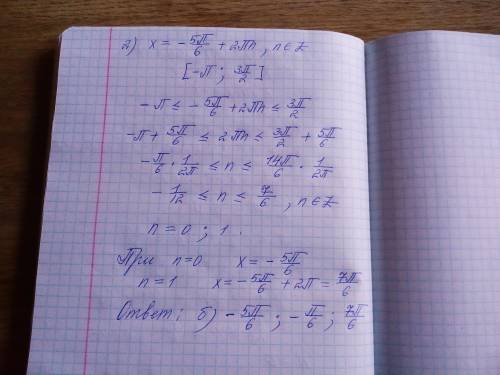 2) x = -5π/6 + 2πn, n ∈ Z
[-π ; 3π/2]
-π ≤ -5π/6 + 2πn ≤ 3π/2
-π + 5π/6 ≤ 2πn ≤ 3π/2 + 5π/6
-π/6 · 1/2π ≤ n ≤ 14π/6 · 1/2π
-1/12 ≤ n ≤ 7/6 , n ∈ Z
n = 0 ; 1 .
При n=0 x = -5π/6
n = 1 x = -5π/6 + 2π = 7π/6
Ответ: б) -5π/6 ; -π/6 ; 7π/6